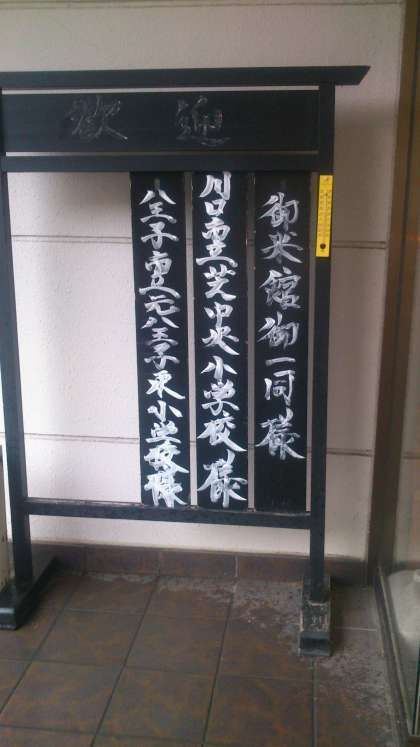 歓迎
御来館御一同様
川口市立芝中央小学校様
八王子市立元八王子東小学校様